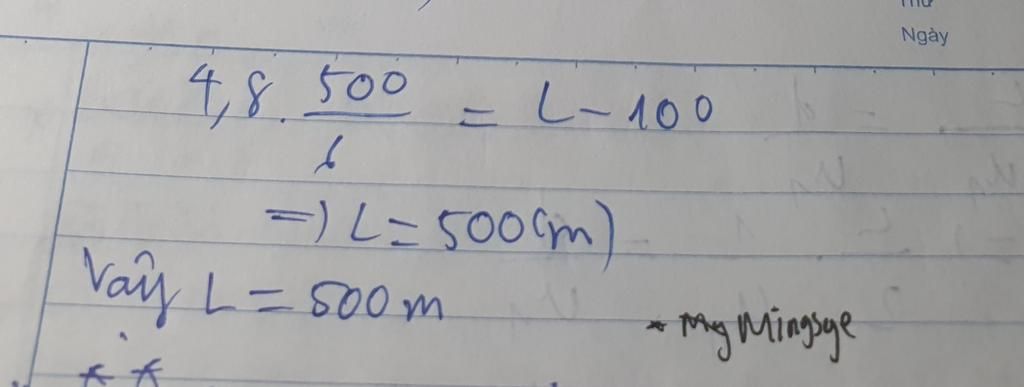 Ngày
4,8. 500/6 = L - 100
=) L = 500(m)
Vậy L = 500m
* My Mingsge
* *